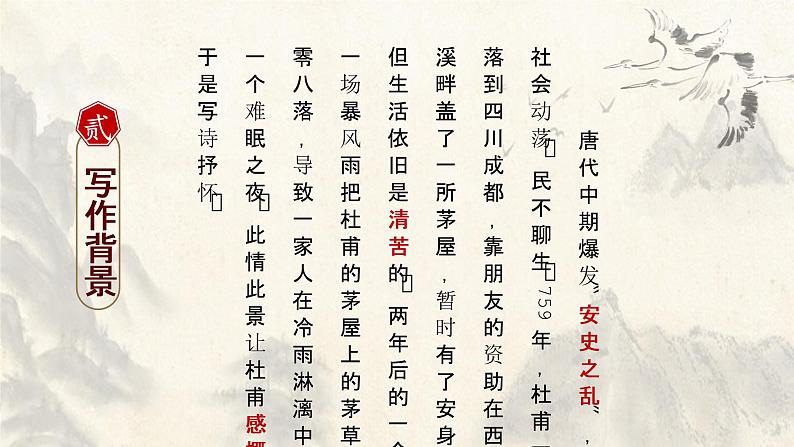 贰
写作背景
唐代中期爆发“安史之乱”，
社会动荡 民不聊生 759 年，杜甫
落到四川成都，靠朋友的资助在西
溪畔盖了一所茅屋，暂时有了安身
但生活依旧是清苦的 两年后的一
一场暴风雨把杜甫的茅屋上的茅草
零八落，导致一家人在冷雨淋漓中
一个难眠之夜 此情此景让杜甫感慨
于是写诗抒怀